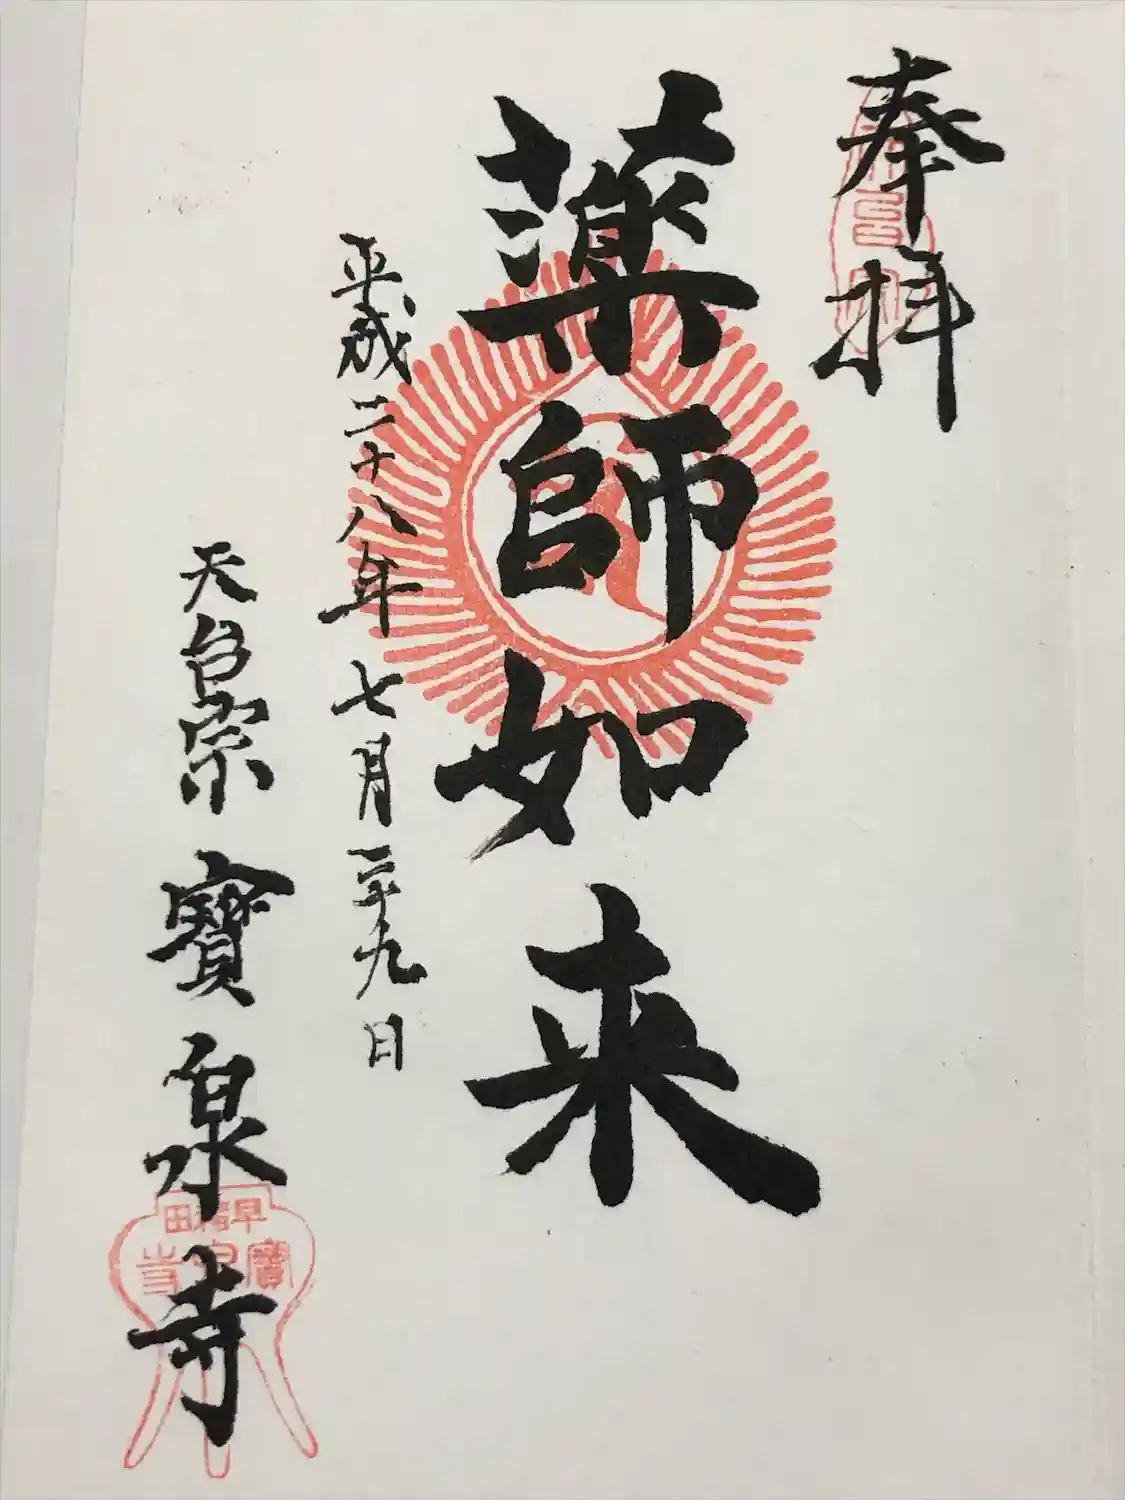 奉拝
薬師如来
平成二十八年七月二十九日
天台宗 寶泉寺
早稲田
寶泉寺